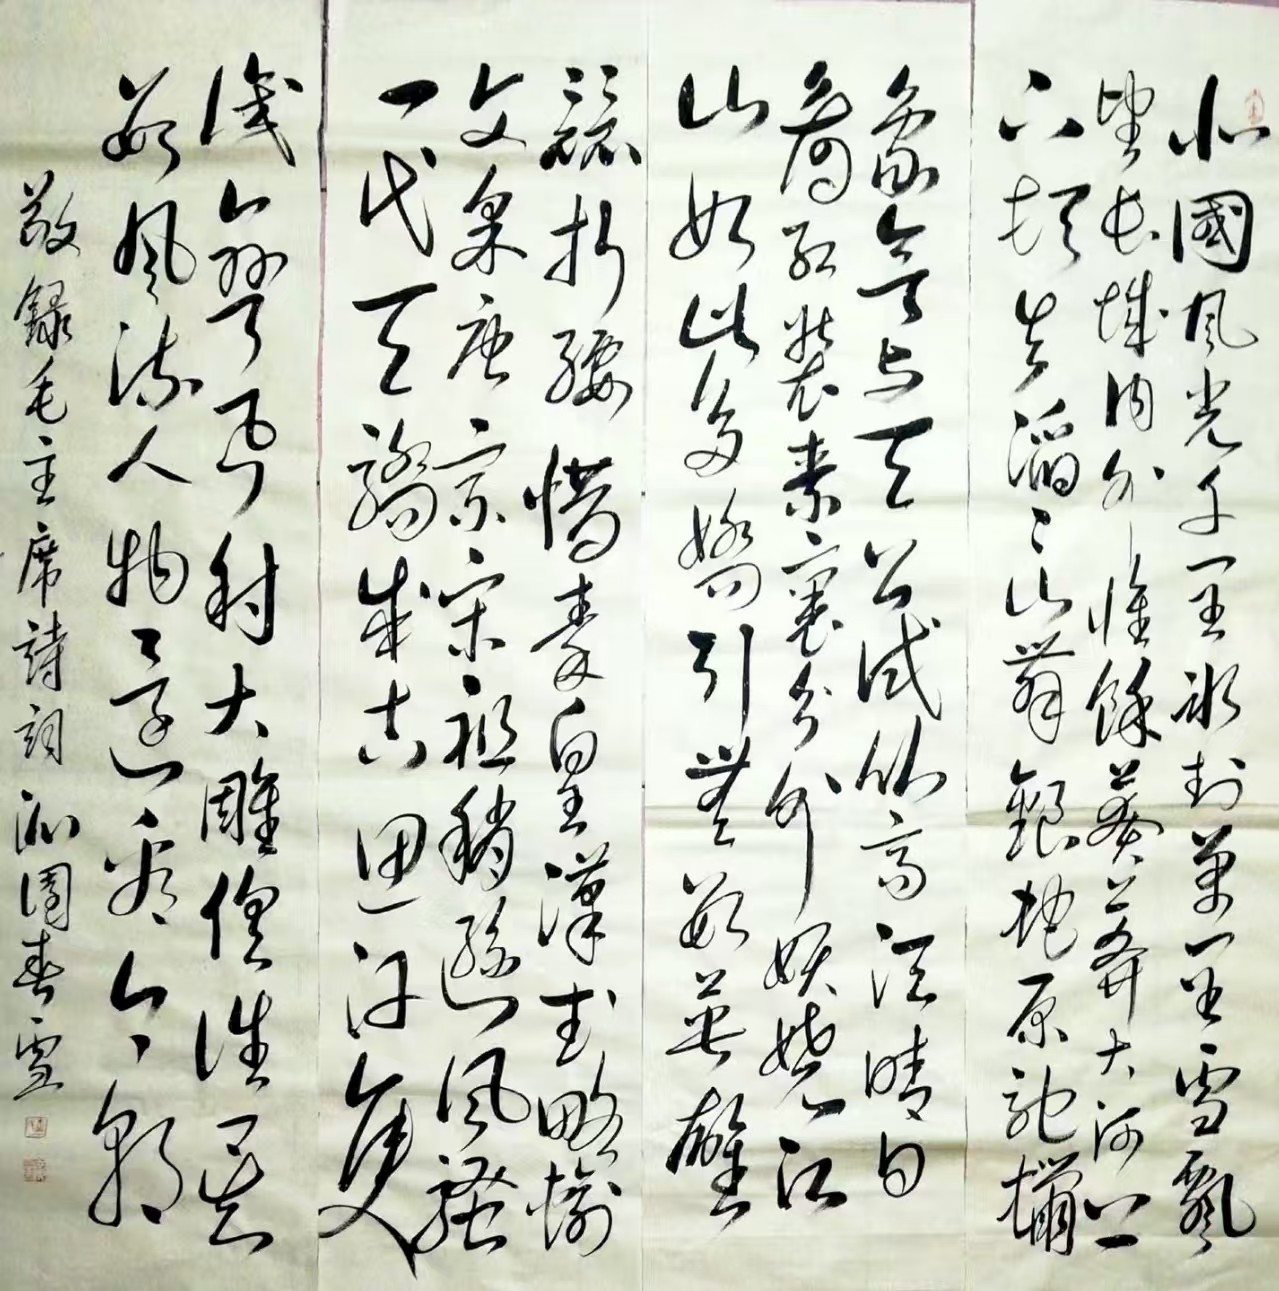 北國風光千里冰封萬里雪飄
望長城内外惟餘莽莽大河上
下頓失滔滔山舞銀蛇原馳蠟
象欲与天公試比高須晴日
看紅裝素裹分外妖嬈江
山如此多嬌引無數英雄
競折腰惜秦皇漢武略輸
文采唐宗宋祖稍遜風騷
一代天驕成吉思汗隻
識彎弓射大雕俱往矣
數風流人物還看今朝
敬錄毛主席詩詞沁園春雪